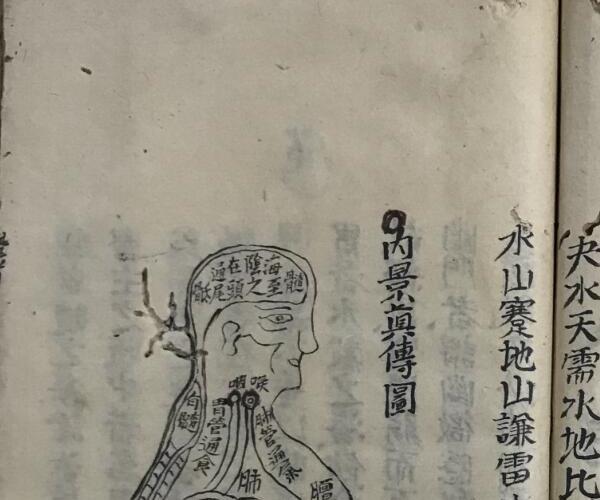 夬水天需水地比
水山蹇地山謙雷
內景眞傳圖
髓
海至
陰之
在頭
通尾
骶
喉
咽
肺管通氣
胃管通食
髓
肺
膻